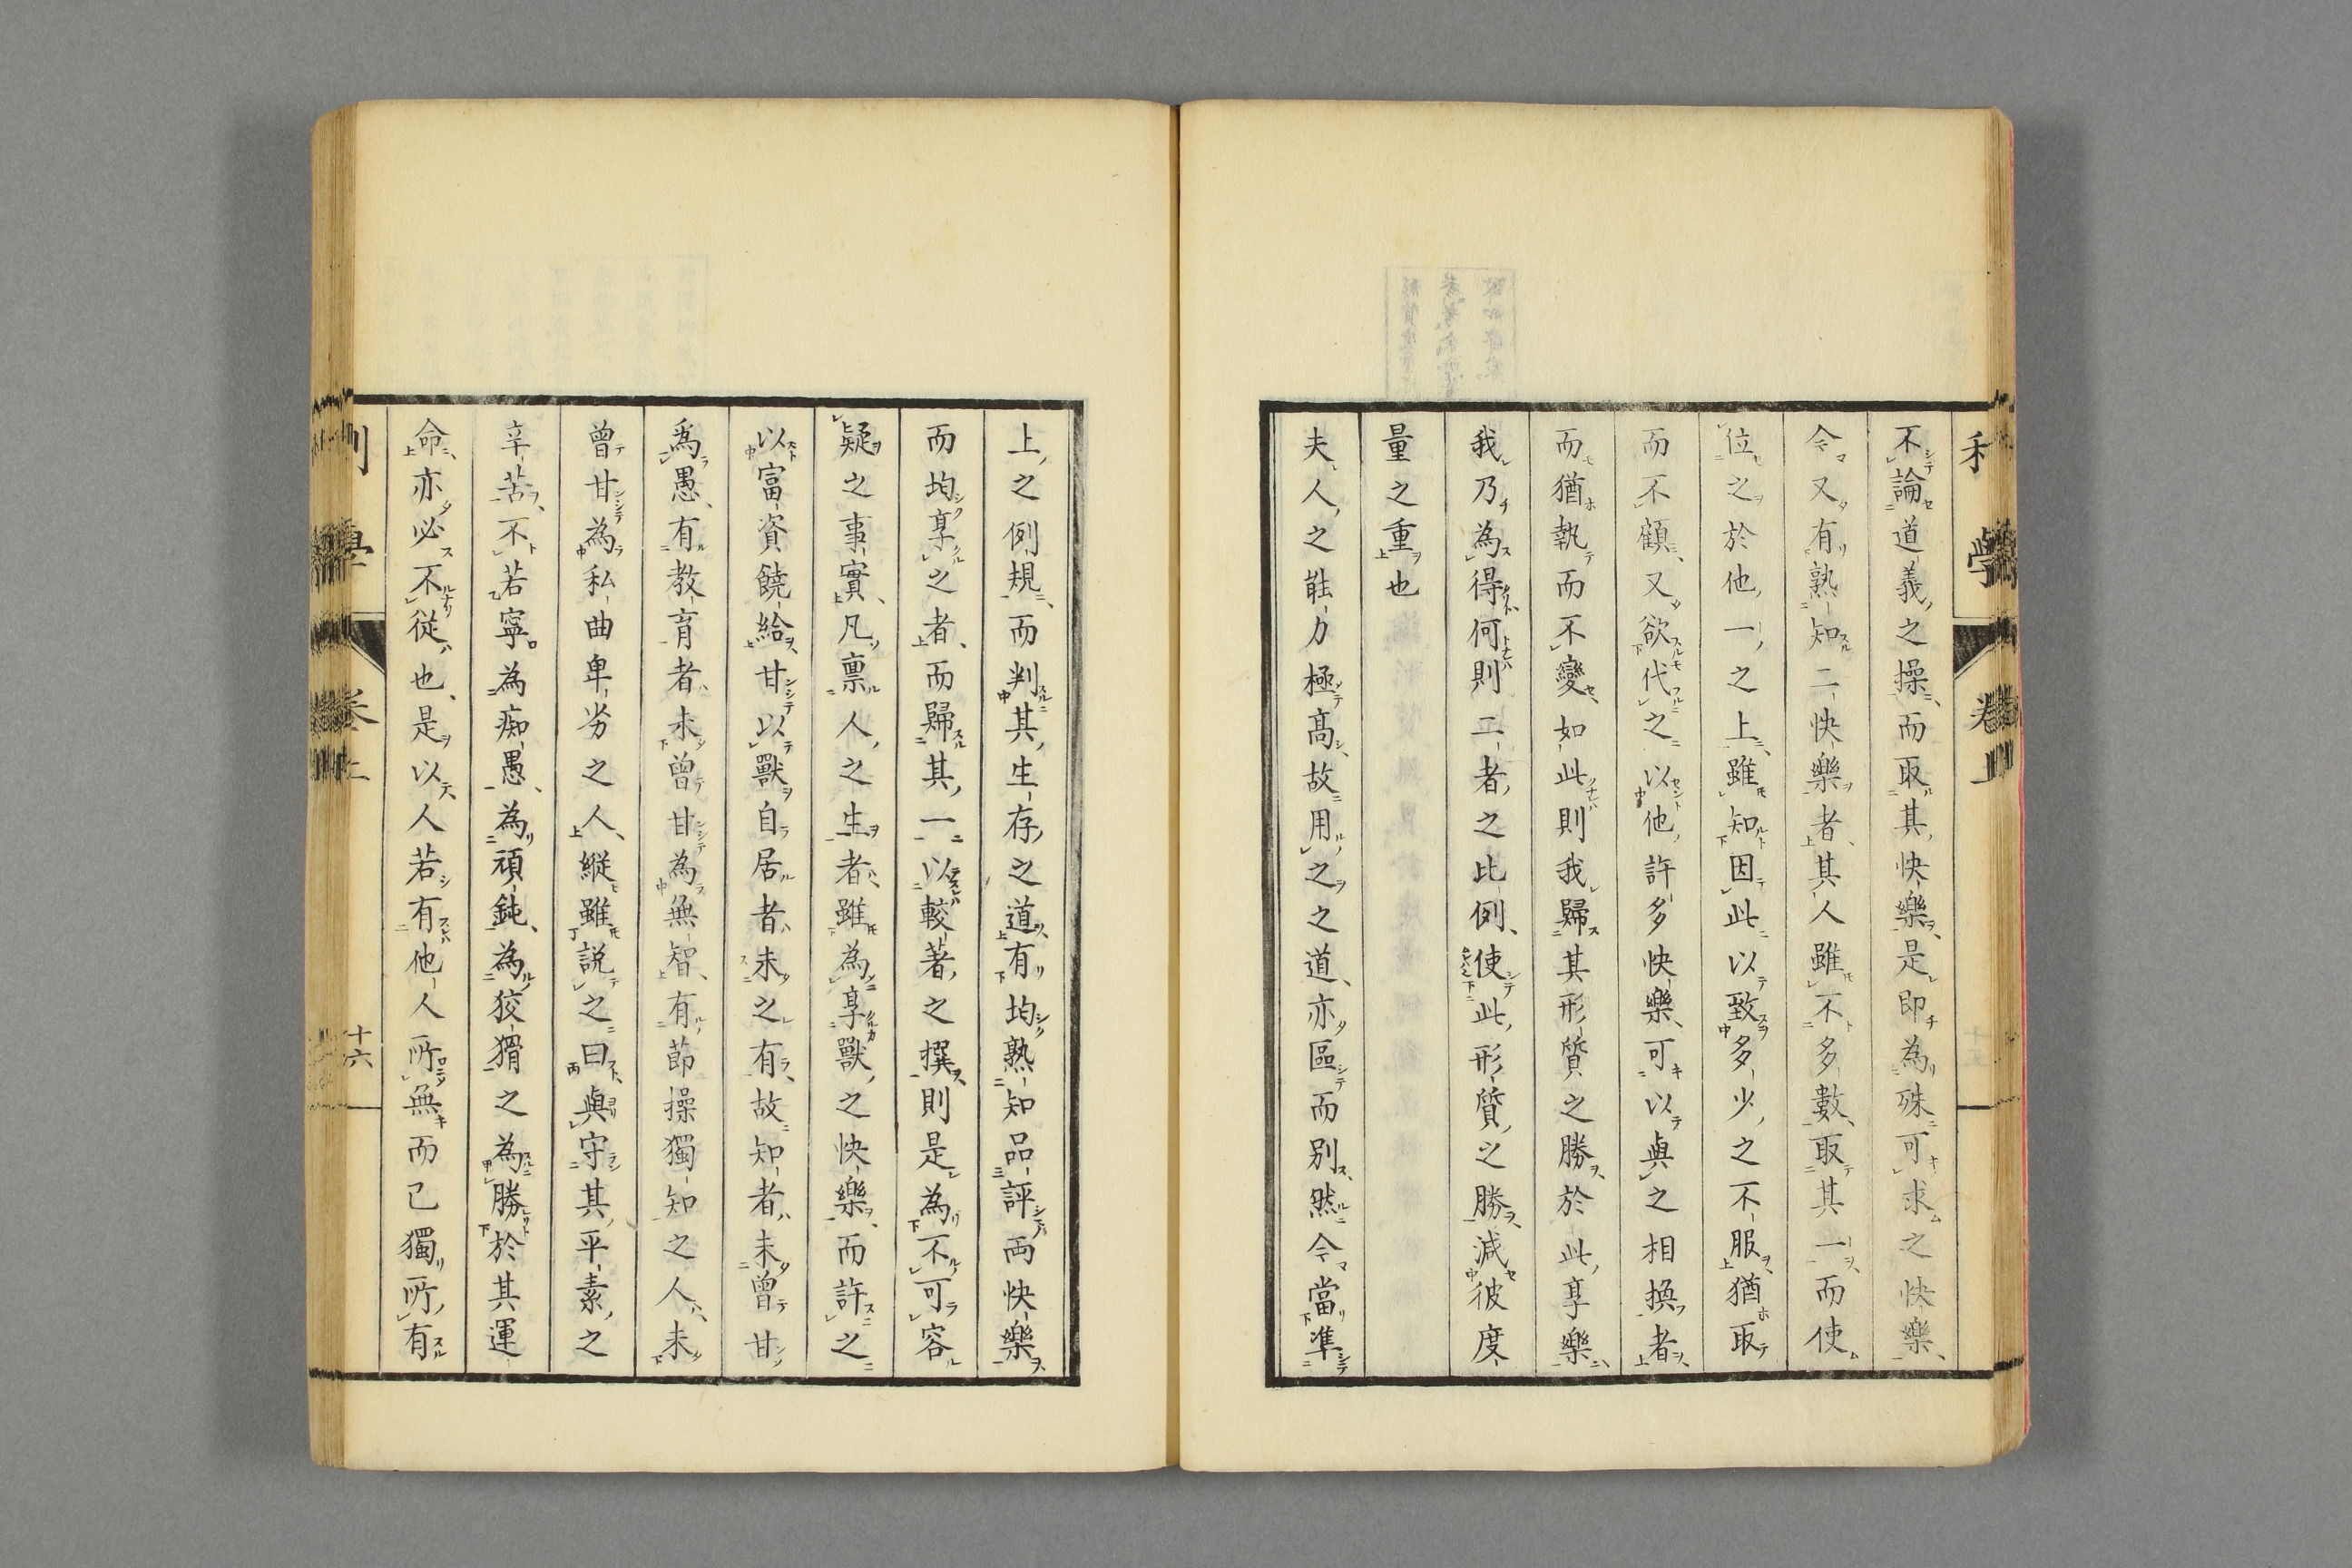 利學 卷上
不論道義之操而取其快樂是即為殊可求之快樂
今又有熟知二快樂者其人雖不多數取其一而使
位之於他一之上雖知因此以致多少之不服猶取
而不顧又欲代之以他許多快樂可以與之相換者
而猶執而不變如此則我歸其形質之勝於此享樂
我乃為得何則二者之比例使此形質之勝減彼度
量之重也
夫人之能力極高故用之之道亦區而別然今當準
上之例規而判其生存之道有均熟知品評兩快樂
而均享之者而歸其一以較著之撰則是為不可容
疑之事實凡稟人之生者雖為享獸之快樂而許之
以富資饒給甘以獸自居者未之有故知者未曾甘
為愚有教育者未曾甘為無智有節操獨知之人未
曾甘為私曲卑劣之人縱雖説之曰與守其平素之
辛苦不若寧為痴愚為頑鈍為狡猾之為勝於其運
命亦必不從也是以人若有他人所無而己獨所有
利學 卷上 十六